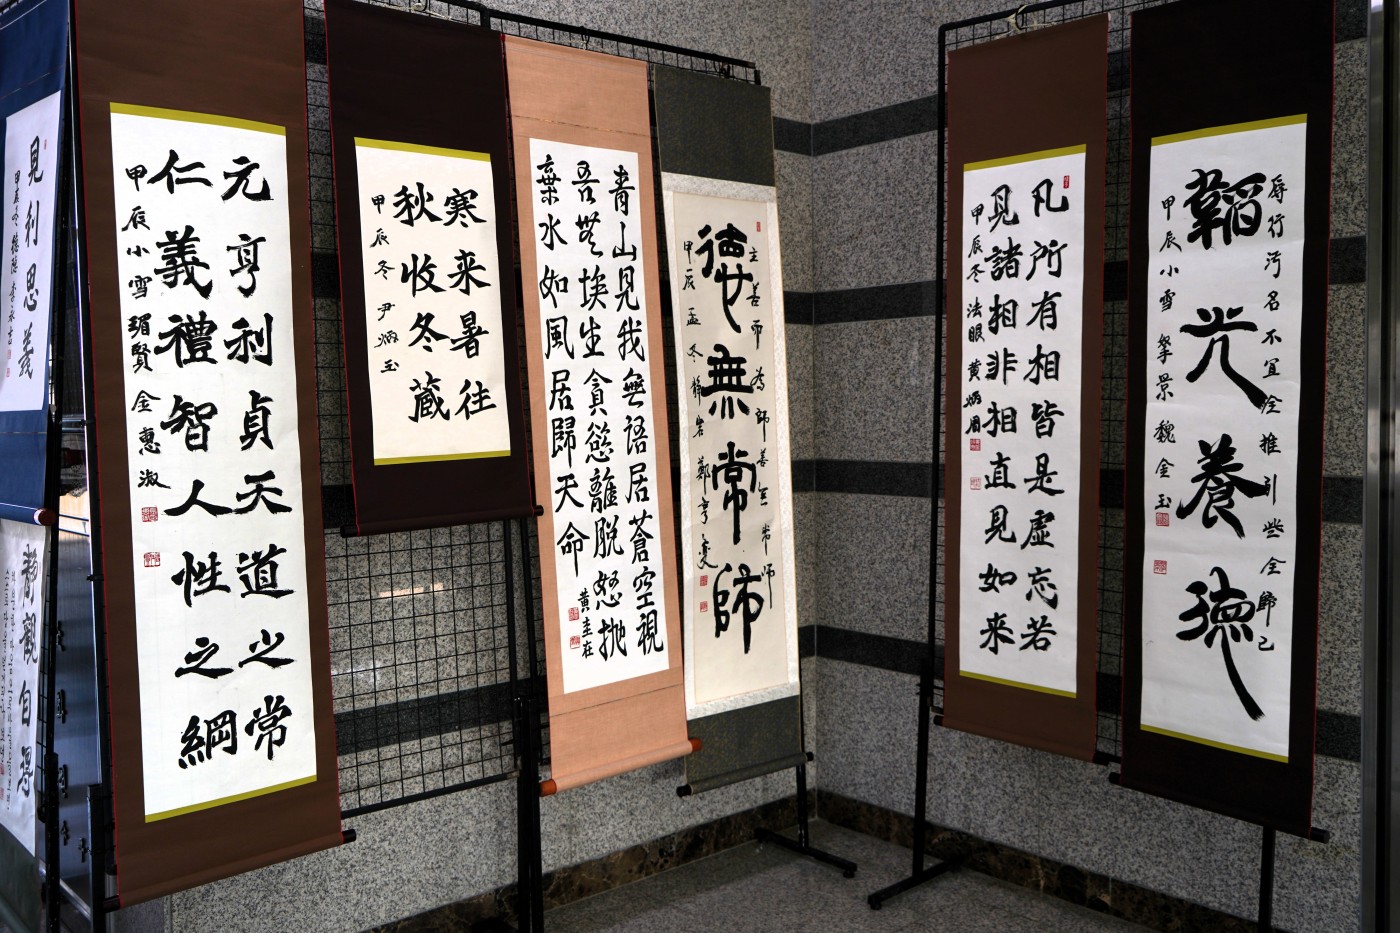 見利思義
靜觀自得
元亨利貞天道之常
仁義禮智人性之綱
甲辰小雪瑂賢金惠淑
寒来暑往
秋收冬藏
甲辰冬尹炳玉
青山見我無語居蒼空視
吾無埃生貪慾離脫怒抛
棄水如風居歸天命
黃圭在
主善而為師善無常師
德無常師
甲辰孟冬靜岩鄭亨
凡所有相皆是虛忘若
見諸相非相直見如来
甲辰冬法眼黃炳周
辱行汚名不宜全推引些全歸己
韜光養德
甲辰小雪擎景魏金玉